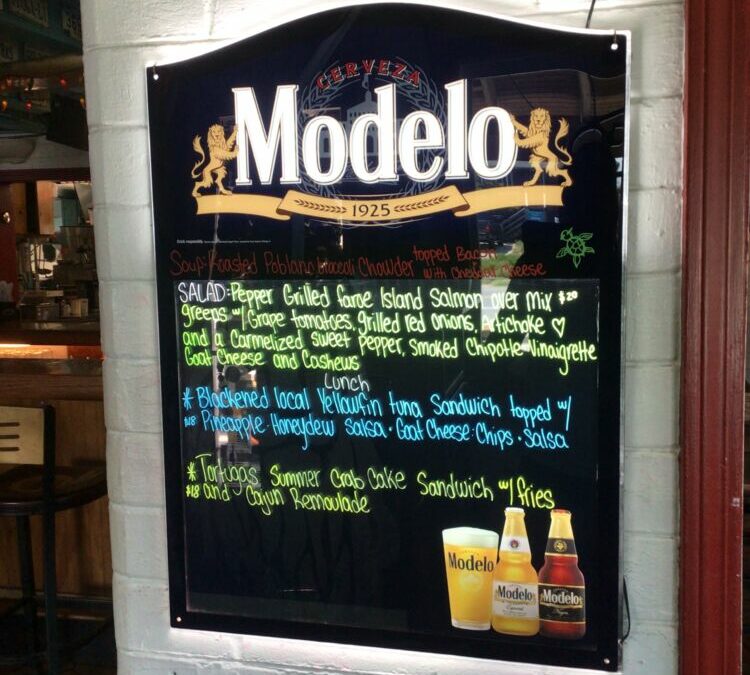 CERVEZA
Modelo
1925
Soup: Roasted Poblano Broccoli Chowder topped Bacon
with Cheddar Cheese
SALAD: Pepper Grilled Faroe Island Salmon over Mix $20
greens w/ Grape tomatoes, grilled red onions, Artichoke ♡
and a Carmelized sweet pepper, smoked Chipotle Vinaigrette
Goat Cheese and Cashews
Lunch
* Blackened local Yellowfin tuna Sandwich topped w/
$18 Pineapple · Honeydew salsa · Goat Cheese · Chips · Salsa
* Tortugas Summer Crab Cake Sandwich w/ fries
$18 and Cajun Remoulade
Modelo
Modelo
Especial
Modelo
Negra